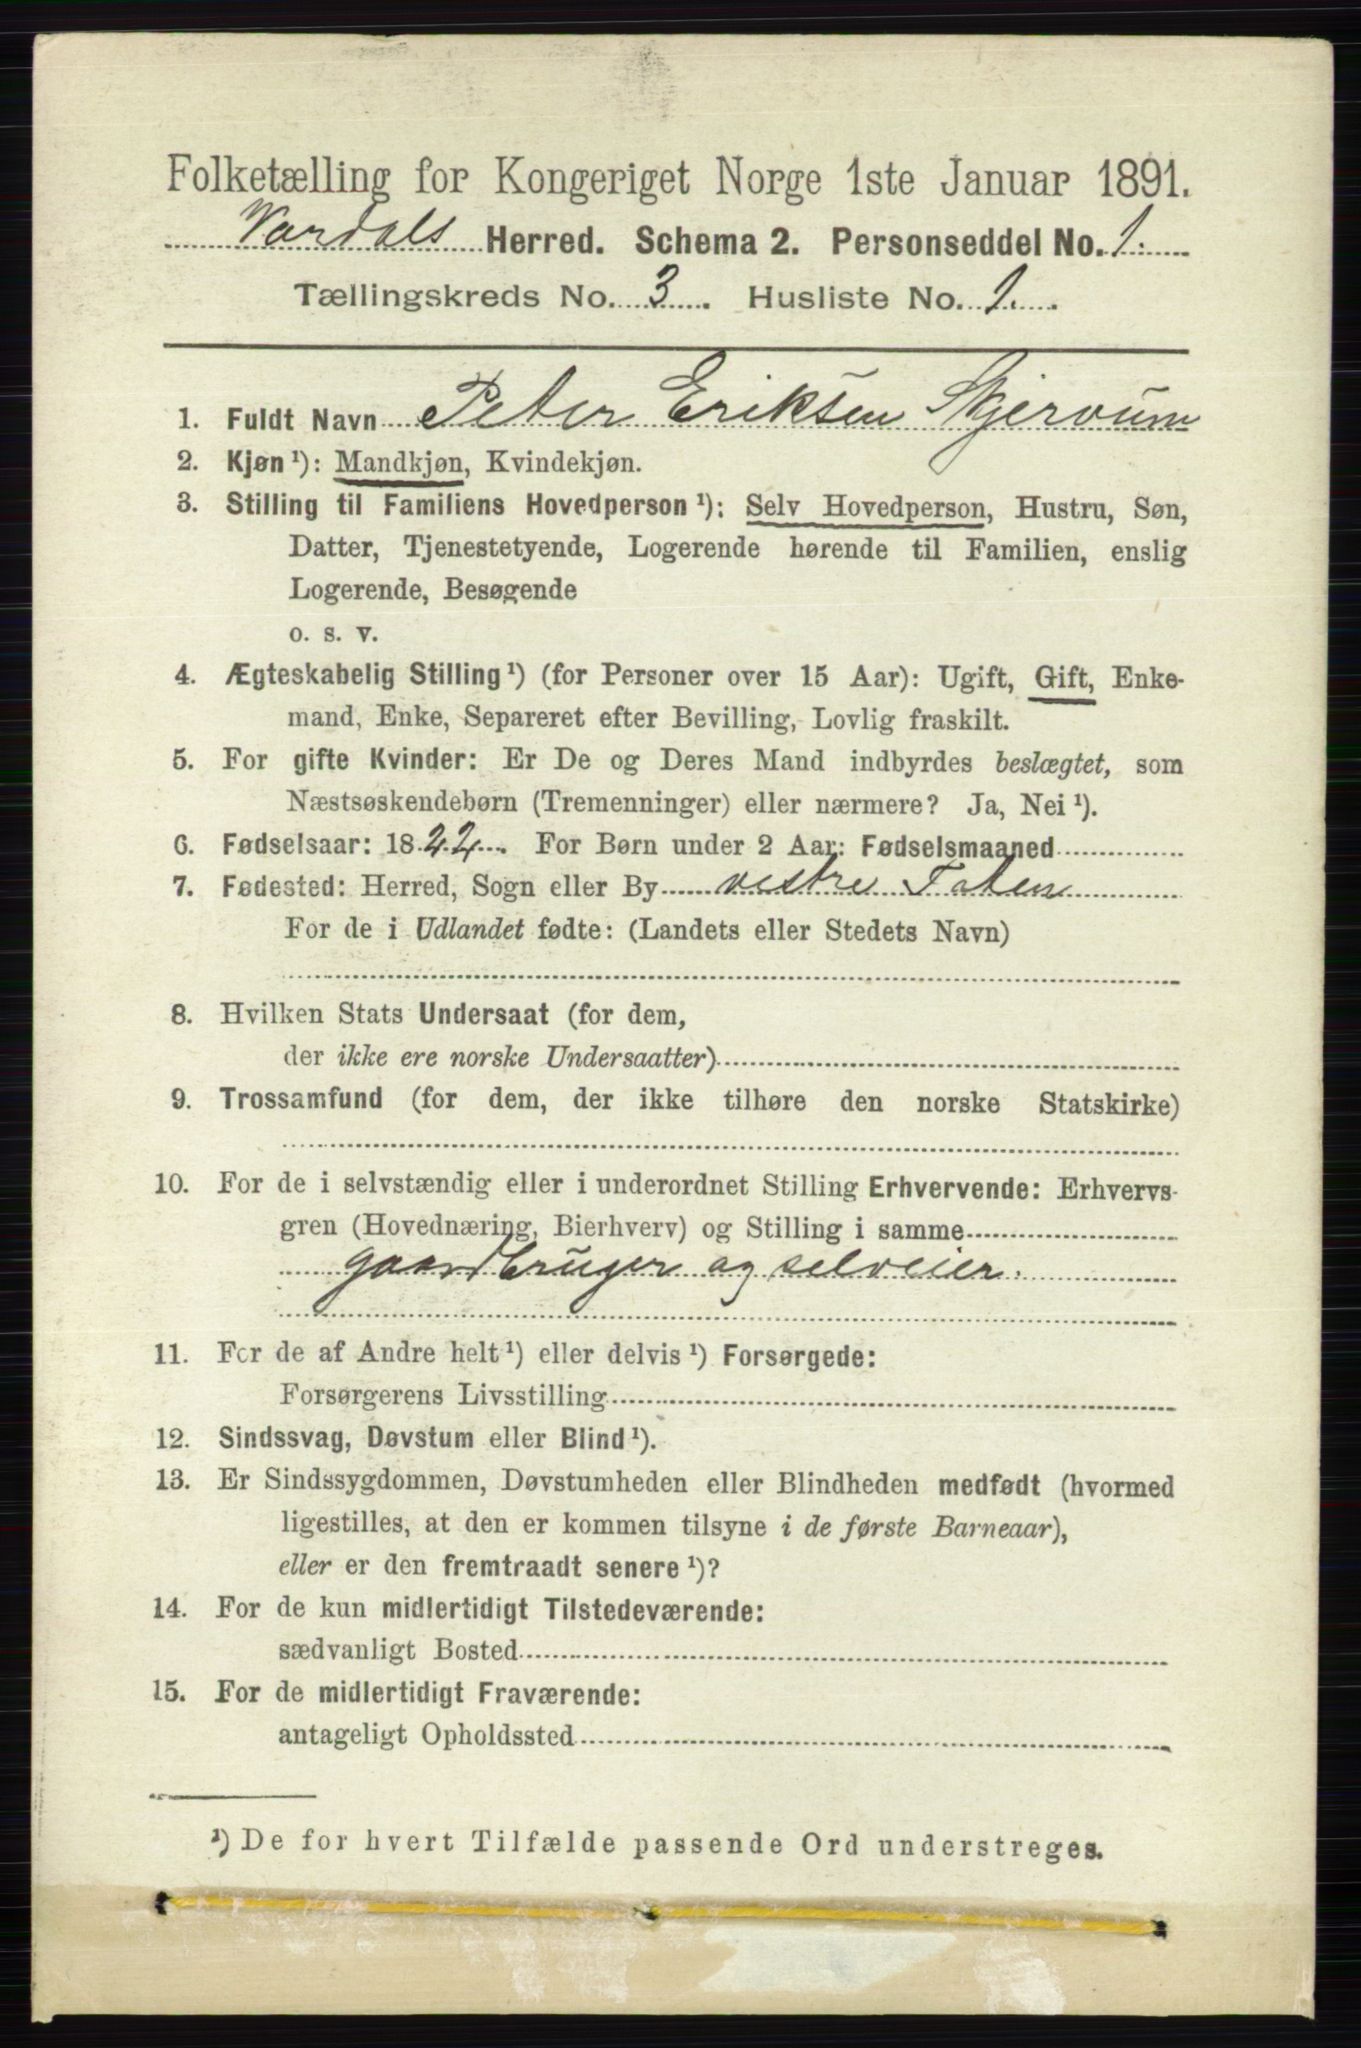 Folketælling for Kongeriget Norge 1ste Januar 1891.
Vardals Herred. Schema 2. Personseddel No. 1.
Tællingskreds No. 3. Husliste No. 1.
1. Fuldt Navn Peter Eriksen Skjervum
2. Kjøn ¹): Mandkjøn, Kvindekjøn.
3. Stilling til Familiens Hovedperson ¹): Selv Hovedperson, Hustru, Søn,
Datter, Tjenestetyende, Logerende hørende til Familien, enslig
Logerende, Besøgende
o. s. v.
4. Ægteskabelig Stilling ¹) (for Personer over 15 Aar): Ugift, Gift, Enke-
mand, Enke, Separeret efter Bevilling, Lovlig fraskilt.
5. For gifte Kvinder: Er De og Deres Mand indbyrdes beslægtet, som
Næstsøskendebørn (Tremenninger) eller nærmere? Ja, Nei ¹).
6. Fødselsaar: 1822. For Børn under 2 Aar: Fødselsmaaned
7. Fødested: Herred, Sogn eller By vestre Toten
For de i Udlandet fødte: (Landets eller Stedets Navn)
8. Hvilken Stats Undersaat (for dem,
der ikke ere norske Undersaatter)
9. Trossamfund (for dem, der ikke tilhøre den norske Statskirke)
10. For de i selvstændig eller i underordnet Stilling Erhvervende: Erhvervs-
gren (Hovednæring, Bierhverv) og Stilling i samme
gaardbruger og selveier.
11. For de af Andre helt ¹) eller delvis ¹) Forsørgede:
Forsørgerens Livsstilling
12. Sindssvag, Døvstum eller Blind ¹).
13. Er Sindssygdommen, Døvstumheden eller Blindheden medfødt (hvormed
ligestilles, at den er kommen tilsyne i de første Barneaar),
eller er den fremtraadt senere ¹)?
14. For de kun midlertidigt Tilstedeværende:
sædvanligt Bosted
15. For de midlertidigt Fraværende:
antageligt Opholdssted
¹) De for hvert Tilfælde passende Ord understreges.